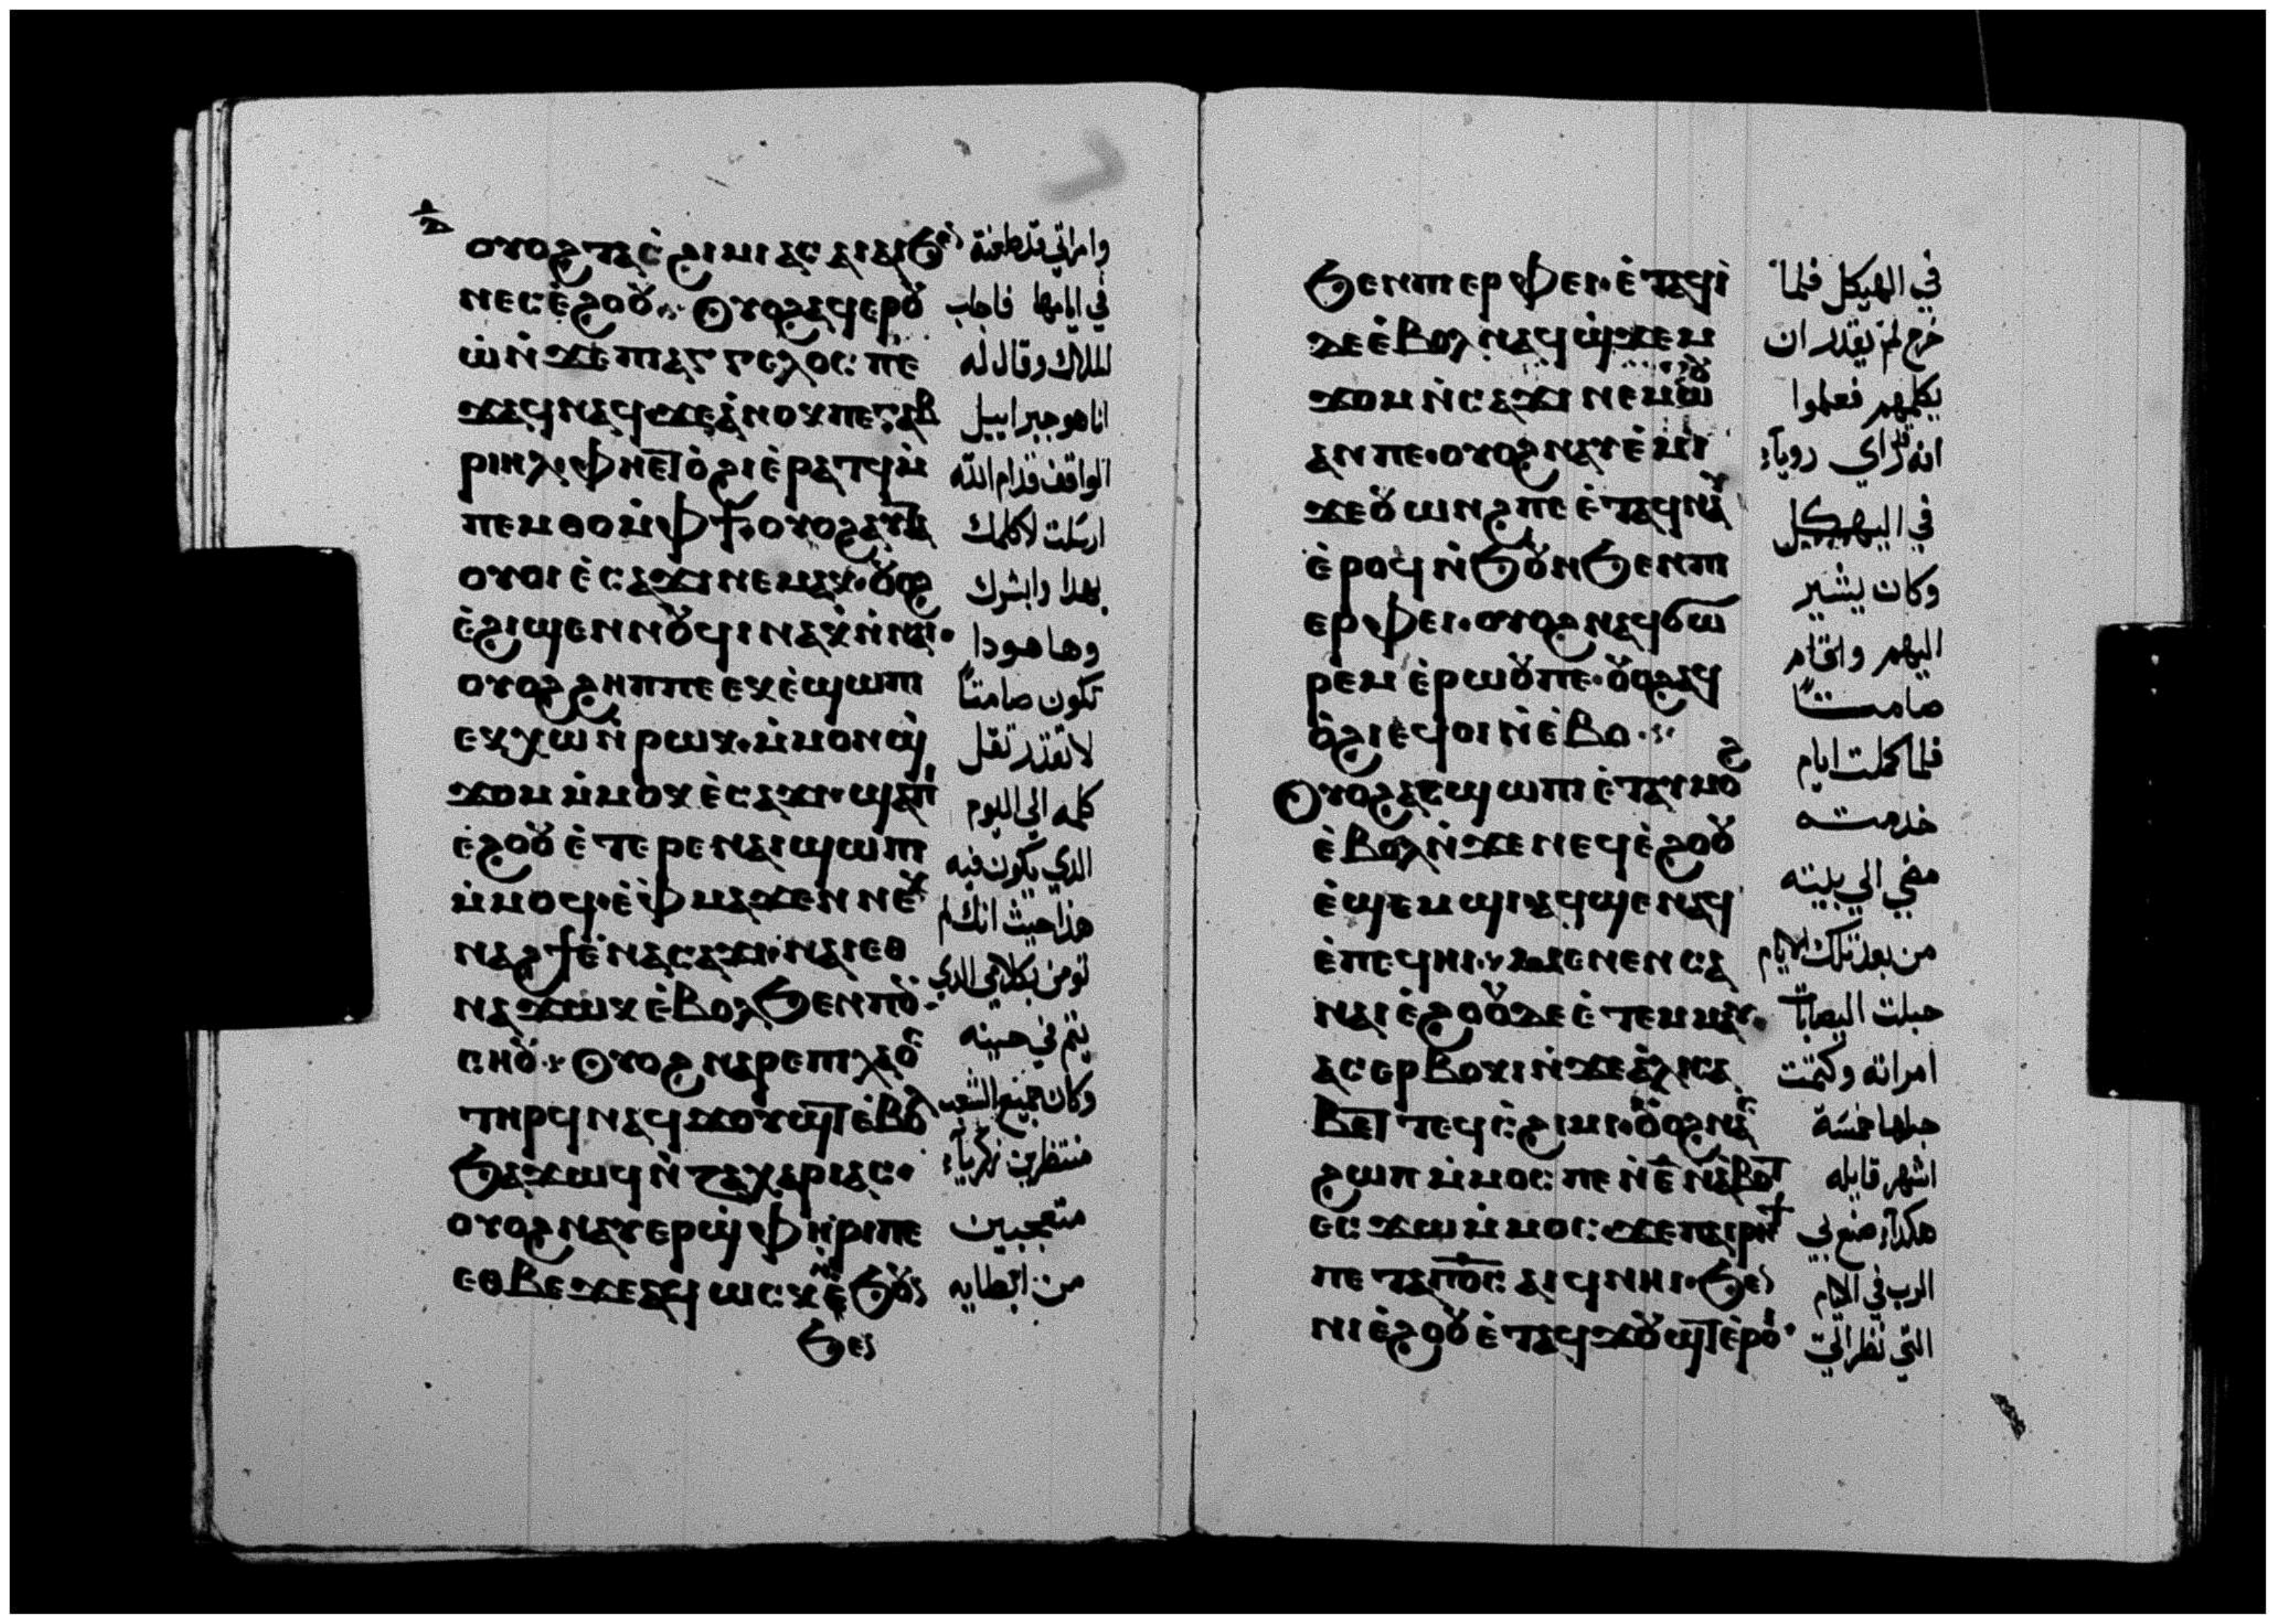 ⲟⲩⲟϩ ⲧⲁⲥ̀ϩⲓⲙⲓ ⲁⲥⲁⲓⲁⲓ ϧⲉⲛ
ⲛⲉⲥⲉ̀ϩⲟⲟⲩ Ⲟⲩⲟϩ ⲁϥⲉⲣⲟⲩ
ⲱ̀ ⲛ̀ϫⲉ ⲡⲓⲁⲅⲅⲉⲗⲟⲥ ⲡⲉ
ϫⲁϥ ⲛⲁϥ ϫⲉ ⲁ̀ⲛⲟⲕ ⲡⲉ ⲅⲁⲃ
ⲣⲓⲏⲗ ⲫⲏⲉⲧⲟ̀ϩⲓ ⲉ̀ⲣⲁⲧϥ ⲙ̀
ⲡⲉⲙⲑⲟ ⲙ̀ⲫϯ· ⲟⲩⲟϩ ⲁⲩⲧⲁ
ⲟⲩⲟⲓ ⲉ̀ⲥⲁϫⲓ ⲛⲉⲙⲁⲕ· ⲟⲩⲟϩ
ⲉ̀ϩⲓϣⲉⲛⲛⲟⲩϥⲓ ⲛⲁⲕ ⲛ̀ⲛⲁⲓ·
ⲟⲩⲟϩ ϩⲏⲡⲡⲉ ⲉⲕⲉ̀ϣⲱⲡⲓ
ⲉⲕⲭⲱ ⲛ̀ⲣⲱⲕ· ⲙ̀ⲙⲟⲛ ϣ̀
ϫⲟⲙ ⲙ̀ⲙⲟⲕ ⲉ̀ⲥⲁϫⲓ· ϣⲁⲡⲓ
ⲉ̀ϩⲟⲟⲩ ⲉ̀ⲧⲉⲣⲉ ⲛⲁⲓ ϣⲱⲡⲓ
ⲙ̀ⲙⲟϥ· ⲉ̀ⲫⲙⲁ ϫⲉ ⲙ̀ⲡⲉⲕ
ⲛⲁϩϯ ⲉ̀ⲛⲁⲥⲁϫⲓ· ⲛⲁⲓ ⲉⲑ
ⲛⲁϫⲱⲕ ⲉ̀ⲃⲟⲗ ϧⲉⲛ ⲡⲟⲩ
ⲥⲏⲟⲩ· Ⲟⲩⲟϩ ⲛⲁⲣⲉ ⲡⲓⲗⲁⲟⲥ
ⲧⲏⲣϥ ⲛⲁϥϫⲟⲩϣⲧ ⲉ̀ⲃⲟⲗ
ϧⲁϫⲱϥ ⲛ̀ⲍⲁⲭⲁⲣⲓⲁⲥ·
ⲟⲩⲟϩ ⲛⲁⲩⲉⲣϣ̀ⲫⲏⲣⲓ ⲡⲉ
ⲉⲑⲃⲉ ϫⲉ ⲁϥⲱⲥⲕ ⲛ̀ϧⲟⲩⲛ
ϧⲉⲛ
وامراتي قد طعنة
في ايامها فاجاب
الملاك وقال له
انا هو جبراييل
الواقف قدام الله
ارسلت لاكلمك
بهدا وابشرك
وها هودا
تكون صامتاً
لا تقدر تقل
كلمه الي اليوم
الدي يكون فيه
هذا حيث انك لم
تومن بكلامي الدي
يتم في حينه
وكان جميع الشعب
منتظرين زكرياء
متعجبين
من ابطايه
ϧⲉⲛ ⲡⲓⲉⲣⲫⲉⲓ· ⲉ̀ⲧⲁϥⲓ̀
ⲇⲉ ⲉ̀ⲃⲟⲗ ⲛⲁϥϣ̀ϫⲉⲙ
ϫⲟⲙ ⲛ̀ⲥⲁϫⲓ ⲛⲉⲙⲱⲟⲩ
ⲁⲛ ⲡⲉ· ⲟⲩⲟϩ ⲛⲁⲩⲉ̀ⲙⲓ
ϫⲉ ⲟⲩⲱⲛϩ ⲡⲉ ⲉ̀ⲧⲁϥⲛⲁⲩ
ⲉ̀ⲣⲟϥ ⲛ̀ϧⲟⲩⲛ ϧⲉⲛ ⲡⲓ
ⲉⲣⲫⲉⲓ· ⲟⲩⲟϩ ⲛⲁϥϭⲱ
ⲣⲉⲙ ⲉ̀ⲣⲱⲟⲩ ⲡⲉ· ⲟⲩⲟϩ ⲁϥ
ⲟ̀ϩⲓ ⲉϥⲟⲓ ⲛ̀ⲉ̀ⲃⲟ·
Ⲟⲩⲟϩ ⲁⲥϣⲱⲡⲓ ⲉ̀ⲧⲁⲩⲙⲟϩ
ⲉ̀ⲃⲟⲗ ⲛ̀ϫⲉ ⲛⲉϥⲉ̀ϩⲟⲟⲩ
ⲉ̀ϣⲉⲙϣⲓ· ⲁϥϣⲉⲛⲁϥ
ⲉ̀ⲡⲉϥⲏⲓ· ⲙⲉⲛⲉⲛⲥⲁ
ⲛⲁⲓⲉ̀ϩⲟⲟⲩ ⲇⲉ ⲉ̀ⲧⲉⲙⲙⲁⲩ·
ⲁⲥⲉⲣⲃⲟⲕⲓ ⲛ̀ϫⲉ ⲁ̀ⲗⲓⲥⲁ
ⲃⲉⲧ ⲧⲉϥⲥ̀ϩⲓⲙⲓ· ⲟⲩⲟϩ ⲛⲁⲥ
ϩⲱⲡ ⲙ̀ⲙⲟⲥ ⲡⲉ ⲛ̀ⲉ̄ ⲛ̀ⲁ̀ⲃⲟⲧ
ⲉⲥϫⲱ ⲙ̀ⲙⲟⲥ ϫⲉ ⲡⲁⲓⲣⲏϯ
ⲡⲉⲧⲁ ⲡ̅ⲟ̅ⲥ̅ ⲁⲓϥ ⲛⲏⲓ· ϧⲉⲛ
ⲛⲓⲉ̀ϩⲟⲟⲩ ⲉ̀ⲧⲁϥϫⲟⲩϣⲧ ⲉ̀ⲣⲟⲓ·
في الهيكل فلما
خرج لم يقدر ان
يكلمهم فعلموا
انه قد راي روياء
في الهيكل
وكان يشير
اليهم واقام
صامتاً
فلما كملت ايام
خدمته
مضي الي بيته
من بعد تلك الايام
حبلت اليصابات
امراته وكتمت
حبلها خمسة
اشهر قايله
هكداء صنع بي
الرب في الايام
التي نظر الي